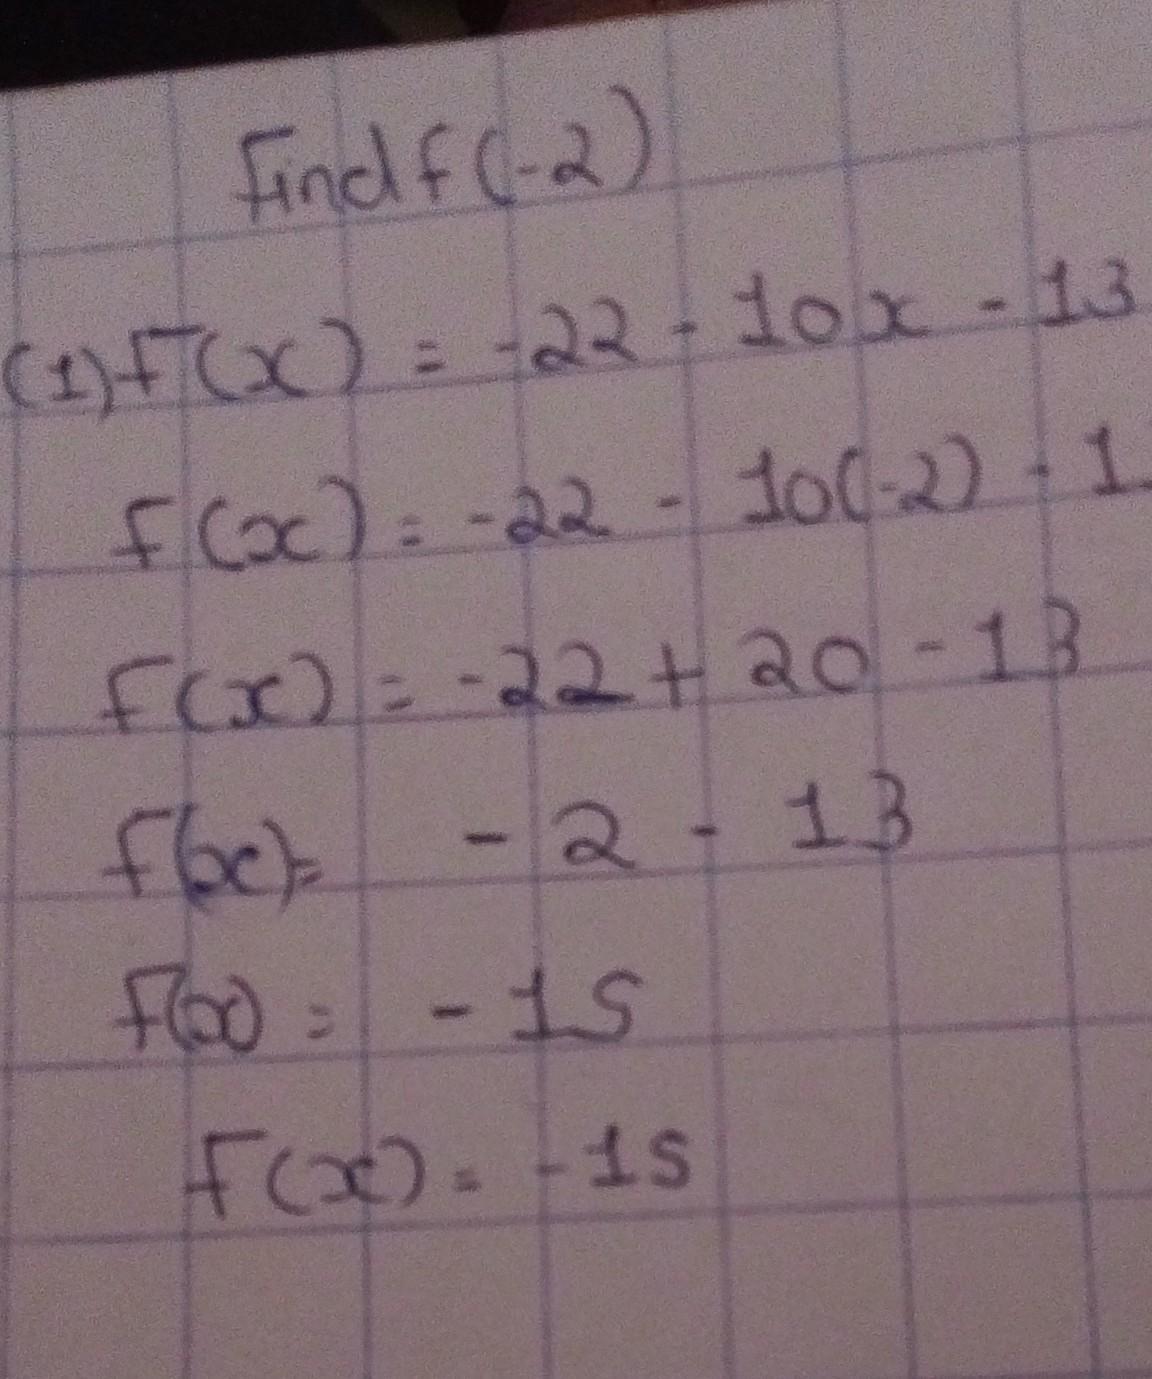 Find f(-2)
(1) F(x) = -22 - 10x - 13
F(x) = -22 - 10(-2) - 1
F(x) = -22 + 20 - 13
F(x) = - 2 - 13
F(x) = - 15
F(x) = -15